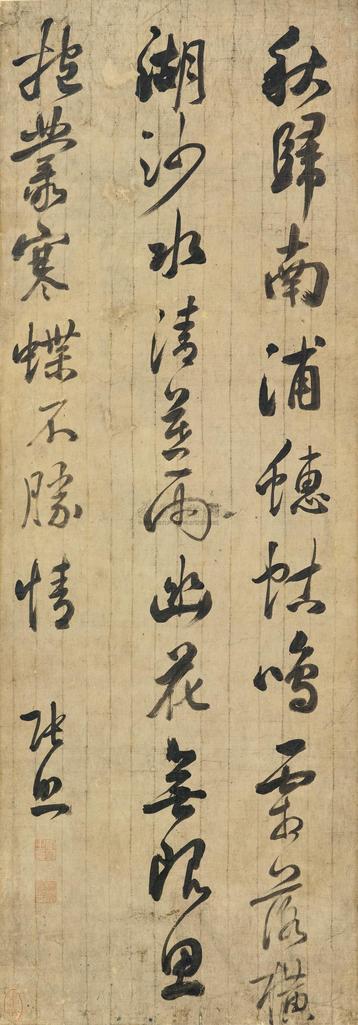 秋歸南浦蟪蛄鳴霜落橫
湖沙水清雨幽花無限思
抱叢寒蝶不勝情 張照